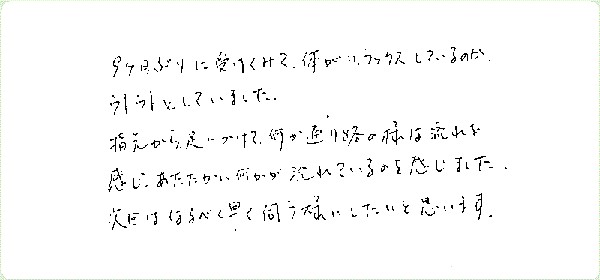 9ヶ月ぶりに受けてみて、体がリラックスしているのか、
ウトウトとしていました。
指先から足につけて、何か通り路の様な流れを
感じ、あたたかい何かが流れているのを感じました。
次回はなるべく早く伺う様にしたいと思います。